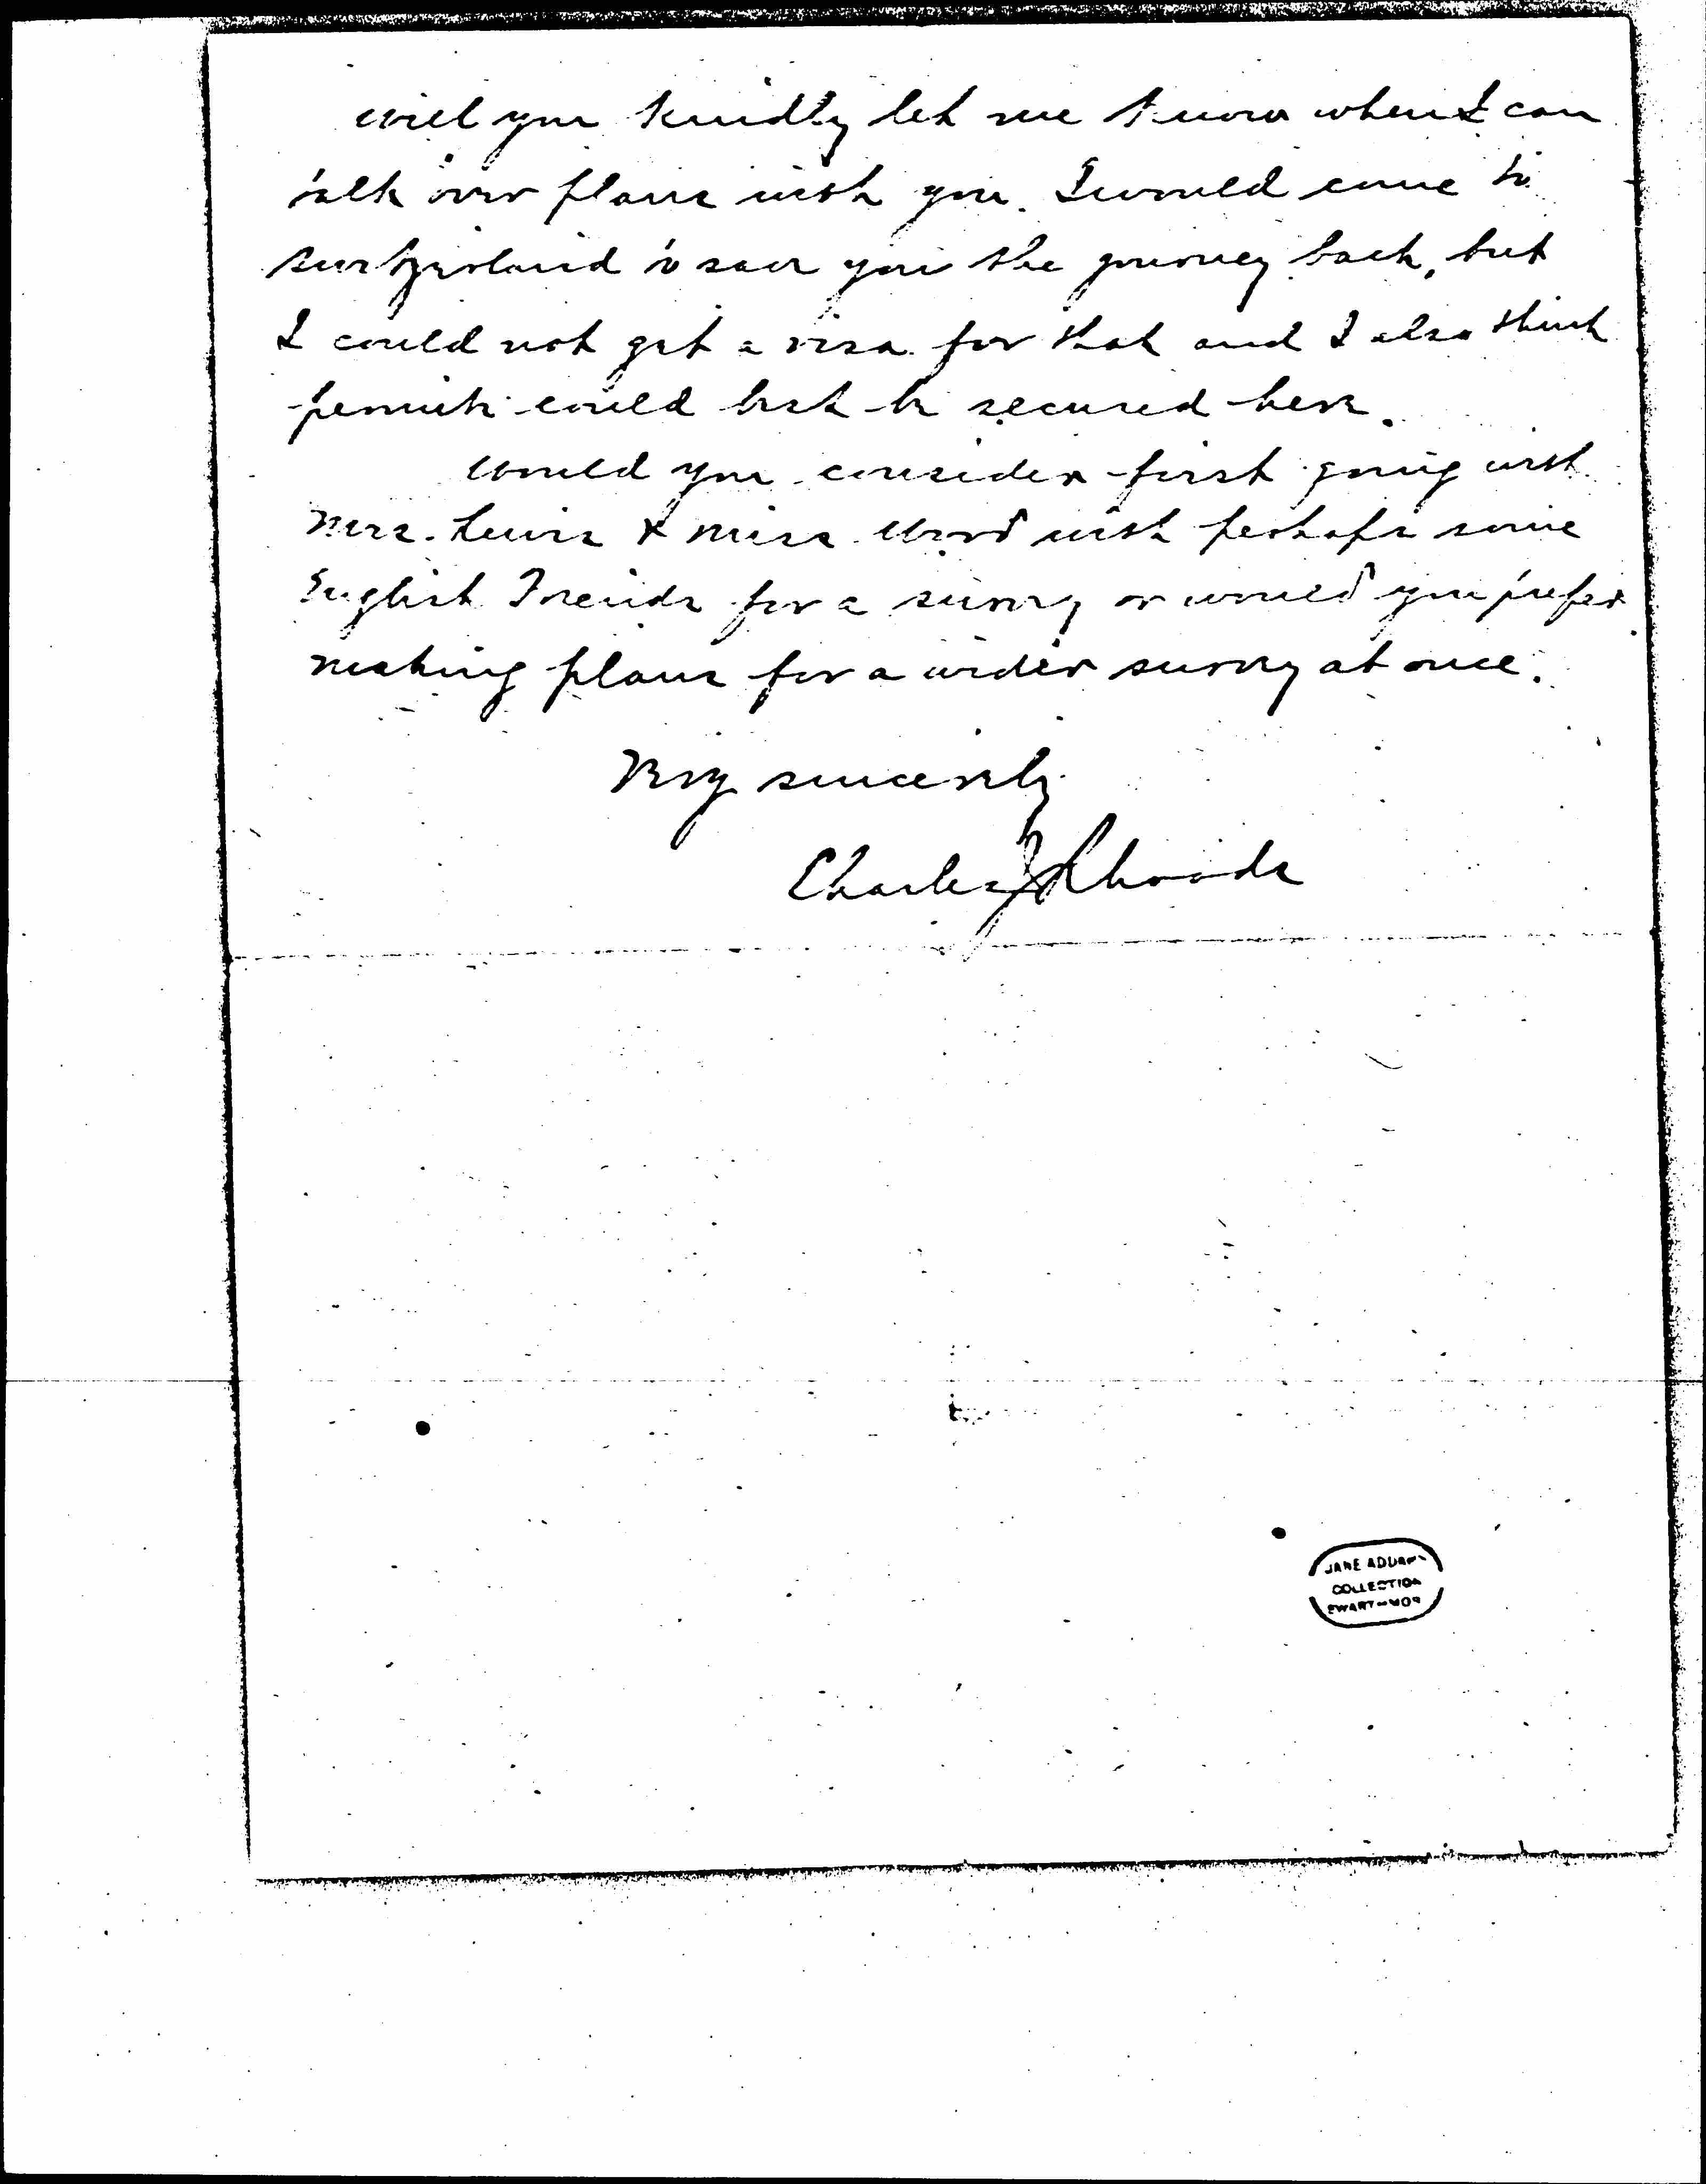 will you kindly let me know when I can
talk over plans with you. I would come to
Switzerland to save you the journey back, but
I could not get a visa for that and I also think
permits could best be secured here.
Would you consider first going with
Mrs. Lewis & Miss Wood with perhaps some
English Friends for a survey or would you prefer
making plans for a wider survey at once.
Very sincerely
Charles J Rhoads
JANE ADDAMS
COLLECTION
SWARTHMORE